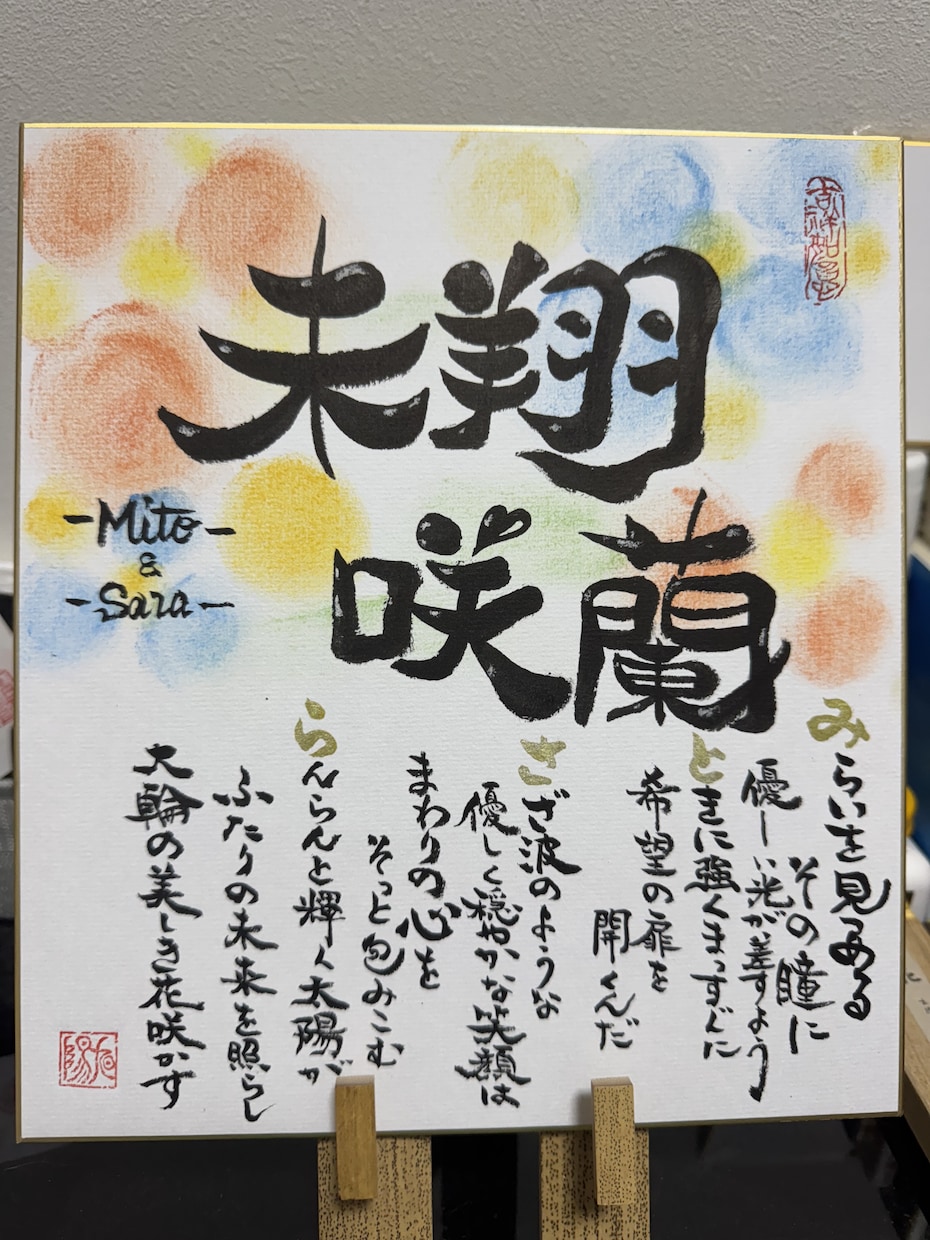 未翔
咲蘭
-Mito-
&
-Sara-
みらいを見つめる
その瞳に
優しい光が差すよう
ときに強くまっすぐに
希望の扉を
開くんだ
さざ波のような
優しく穏やかな笑顔は
まわりの心を
そっと包みこむ
らんらんと輝く太陽が
ふたりの未来を照らし
大輪の美しき花咲かす
吉祥如意